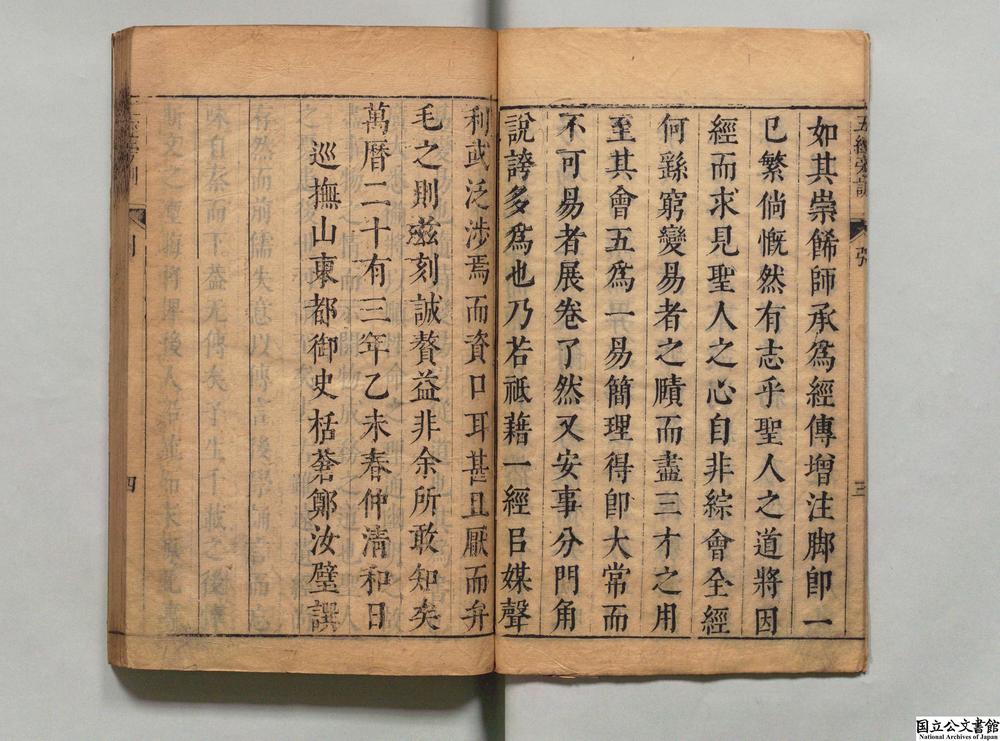 如其崇餙師承爲經傳增注脚卽一
已繁倘慨然有志乎聖人之道將因
經而求見聖人之心自非綜會全經
何繇窮變易者之賾而盡三才之用
至其會五爲一易簡理得卽大常而
不可易者展卷了然又安事分門角
說誇多爲也乃若祗藉一經㠯媒聲
利武泛涉焉而資口耳甚且厭而弁
毛之則玆刻誠贅益非余所敢知矣
萬曆二十有三年乙未春仲淸和日
巡撫山東都御史栝蒼鄭汝璧譔
三
四
国立公文書館
National Archives of Japan